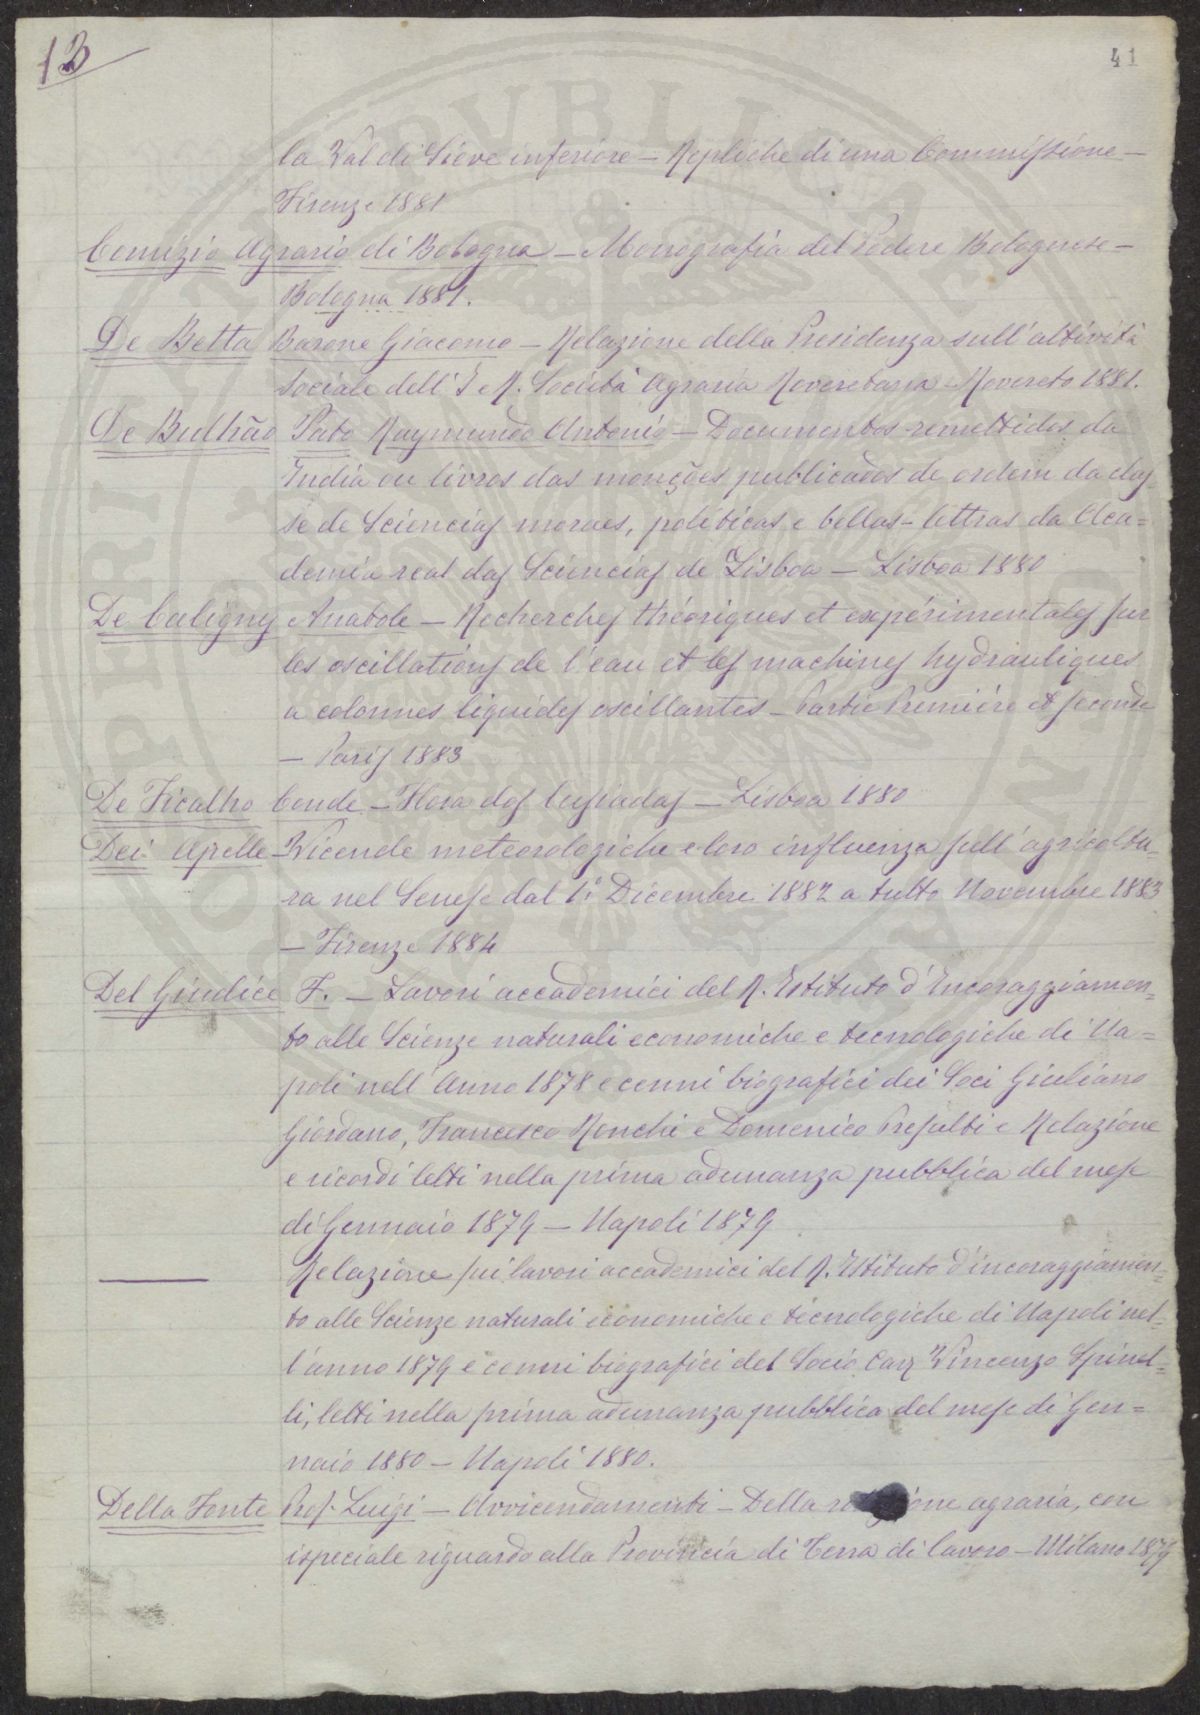 13
41
la Val di Sieve inferiore – Repliche di una Commissione –
Firenze 1881
Comizio Agrario di Bologna – Monografia del Podere Bolognese –
Bologna 1881.
De Betta Barone Giacomo – Relazione della Presidenza sull'attività
sociale dell' I e R. Società Agraria Roveretana – Rovereto 1881.
De Bulhão Pato Raymundo Antonio – Documentos remettidos da
India ou livros das monções publicados de ordem da clas-
se de Sciencias moraes, politicas e bellas-lettras da Aca=
demia real das Sciencias de Lisboa – Lisboa 1880
De Caligny Anatole – Recherches théoriques et expérimentales sur
les oscillations de l'eau et les machines hydrauliques
a colonnes liquides oscillantes – Partie Première et seconde
– Paris 1883
De Ficalho Conde – Flora dos Lusiadas – Lisboa 1880
Dei Apelle – Vicende meteorologiche e loro influenza sull'agricoltu=
ra nel Senese dal 1° Dicembre 1882 a tutto Novembre 1883
– Firenze 1884
Del Giudice F. – Lavori accademici del R. Istituto d'Incoraggiamen=
to alle Scienze naturali economiche e tecnologiche di Na=
poli nell'Anno 1878 e cenni biografici dei Soci Giuliano
Giordano, Francesco Ronchi e Domenico Presutti e Relazione
e ricordi letti nella prima adunanza pubblica del mese
di Gennaio 1879 – Napoli 1879
Relazione sui lavori accademici del R. Istituto d'incoraggiamen=
to alle Scienze naturali economiche e tecnologiche di Napoli nel=
l'anno 1879 e cenni biografici del Socio Cav Vincenzo Spinel=
li, letti nella prima adunanza pubblica del mese di Gen=
naio 1880 – Napoli 1880.
Della Fonte Prof. Luigi – Avvicendamenti – Della rotazione agraria, con
ispeciale riguardo alla Provincia di Terra di lavoro – Milano 1879